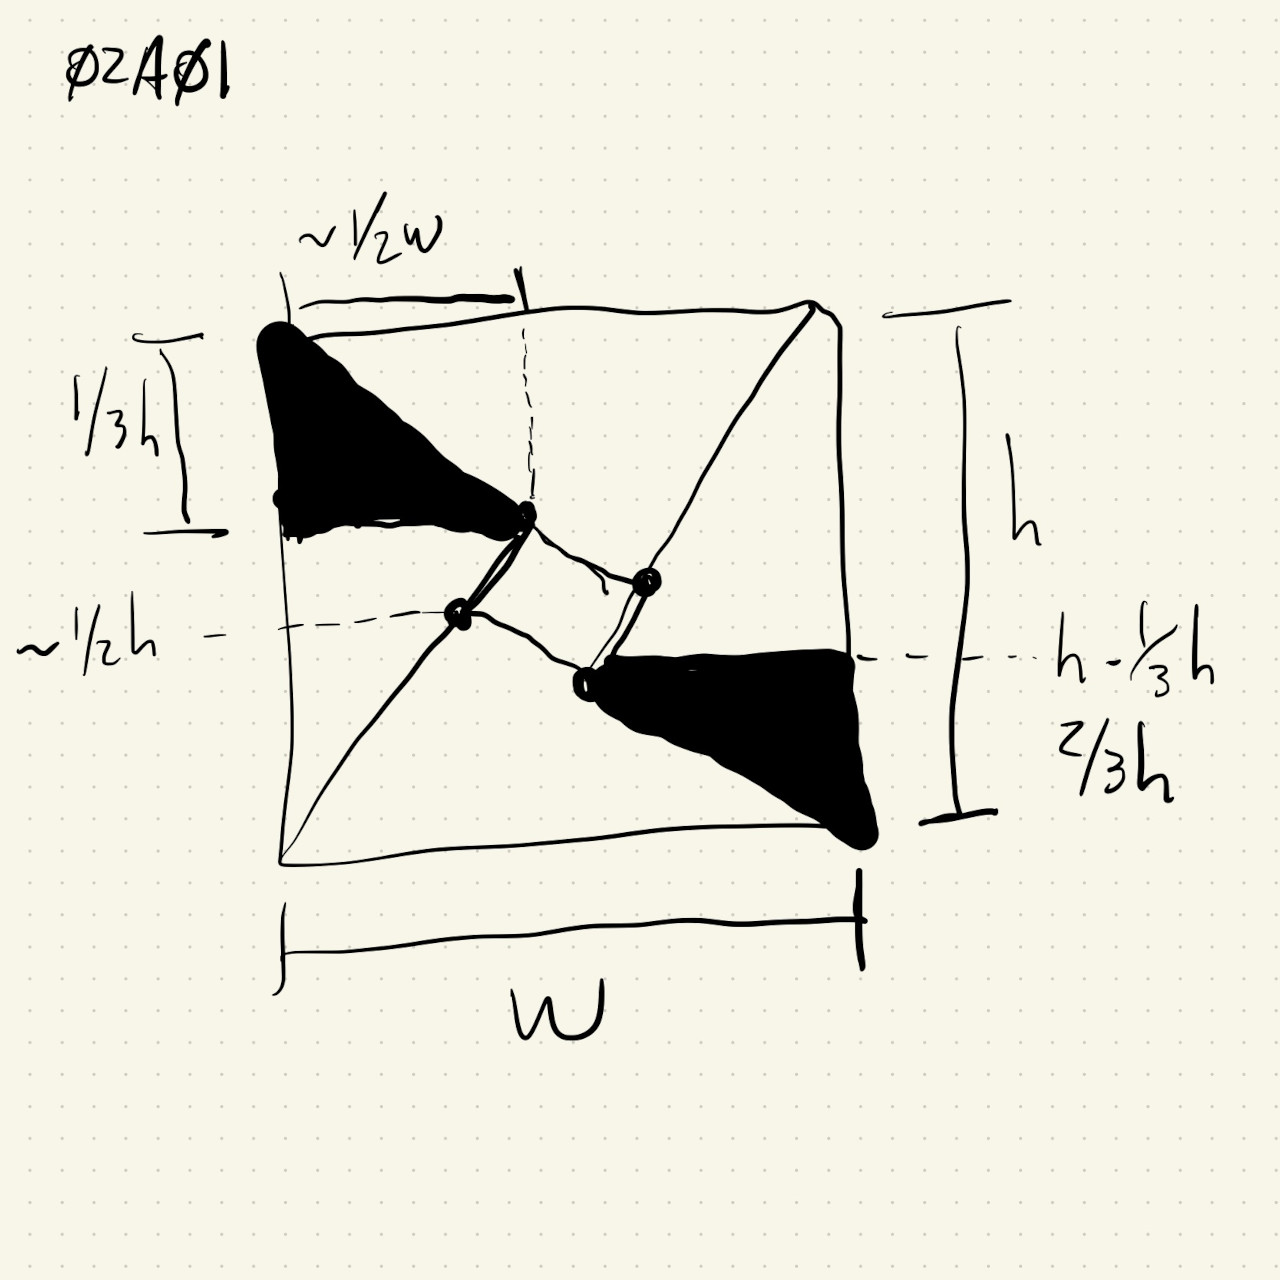 Ø2AØ1
~ 1/2 w
1/3 h
h
~ 1/2 h
h - 1/3 h
2/3 h
W